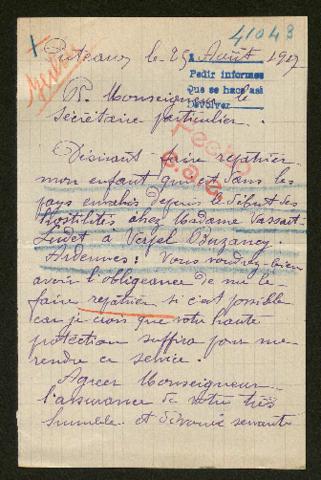 41043
Puteaux le 25 Août 1917
Pedir informes
Que se haga así
Devolver
A Monseigneur le
Secrétaire particulier.
Désirant faire rapatrier
mon enfant qui est dans les
pays envahis depuis le début des
Hostilités chez Madame Vassart
à Buzancy.
Ardennes: Vous voudrez bien
avoir l'obligeance de me le
faire rapatrier si c'est possible
car je crois que votre haute
protection suffira pour me
rendre ce service.
Agréer Monseigneur
l'assurance de votre très
humble et dévouée servante